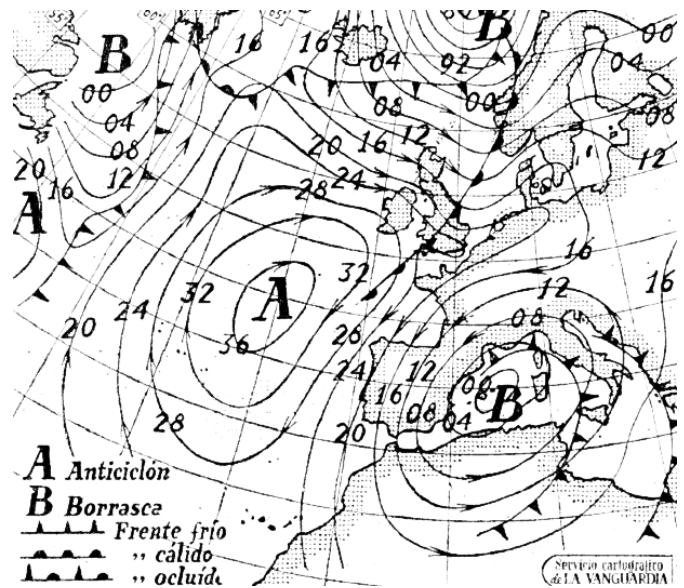 B
B
16
16
04
02
00
00
04
08
00
04
08
08
12
20
16
12
A
20
16
12
08
12
28
24
16
32
32
A
12
16
08
20
24
36
28
24
12
00
16
08
04
B
28
20
A Anticiclón
B Borrasca
Frente frío
,, cálido
,, ocluíd
Servicio cartográfico
de LA VANGUARDIA